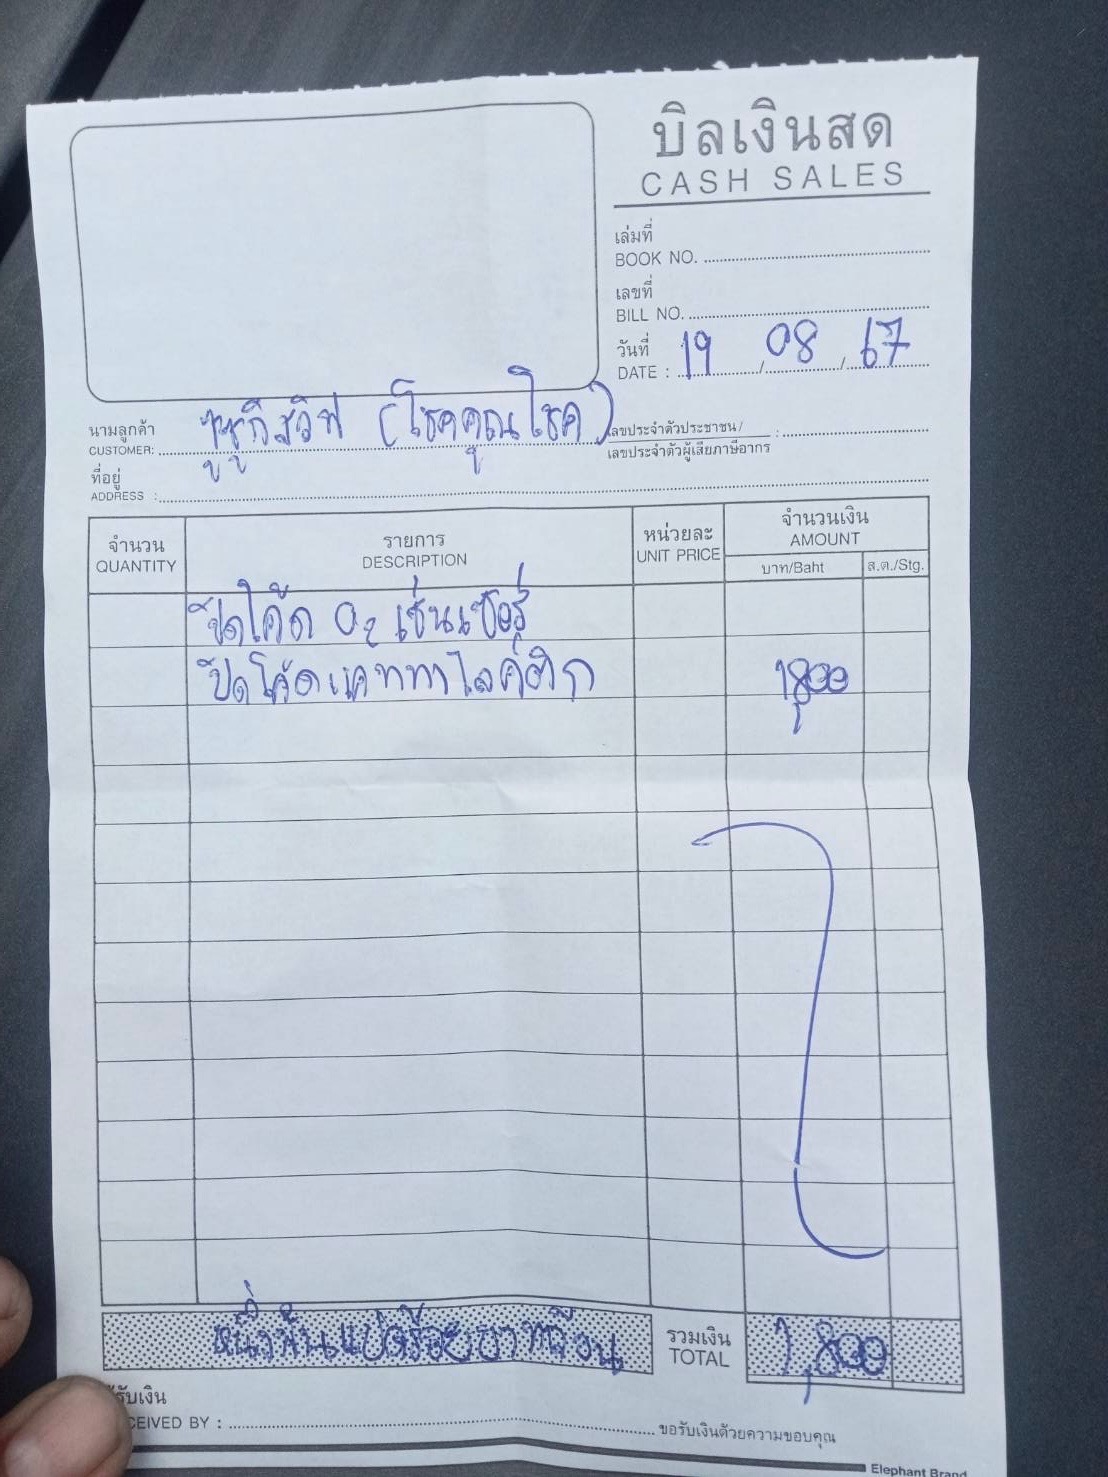 บิลเงินสด
CASH SALES
เล่มที่
BOOK NO.
เลขที่
BILL NO.
วันที่
DATE : 19 / 08 / 67
นามลูกค้า
CUSTOMER: ซูซูกิสวิฟ (โชคคูณโชค)
เลขประจำตัวประชาชน/ :
เลขประจำตัวผู้เสียภาษีอากร
ที่อยู่
ADDRESS :
จำนวน
QUANTITY
รายการ
DESCRIPTION
หน่วยละ
UNIT PRICE
จำนวนเงิน
AMOUNT
บาท/Baht
ส.ต./Stg.
ปิดโค้ด O2 เซ่นเซอร์
ปิดโค้ดแคททาไลค์ติก 1,800
หนึ่งพันแปดร้อยบาทถ้วน
รวมเงิน
TOTAL
1,800
รับเงิน
CEIVED BY :
ขอรับเงินด้วยความขอบคุณ
Elephant Brand